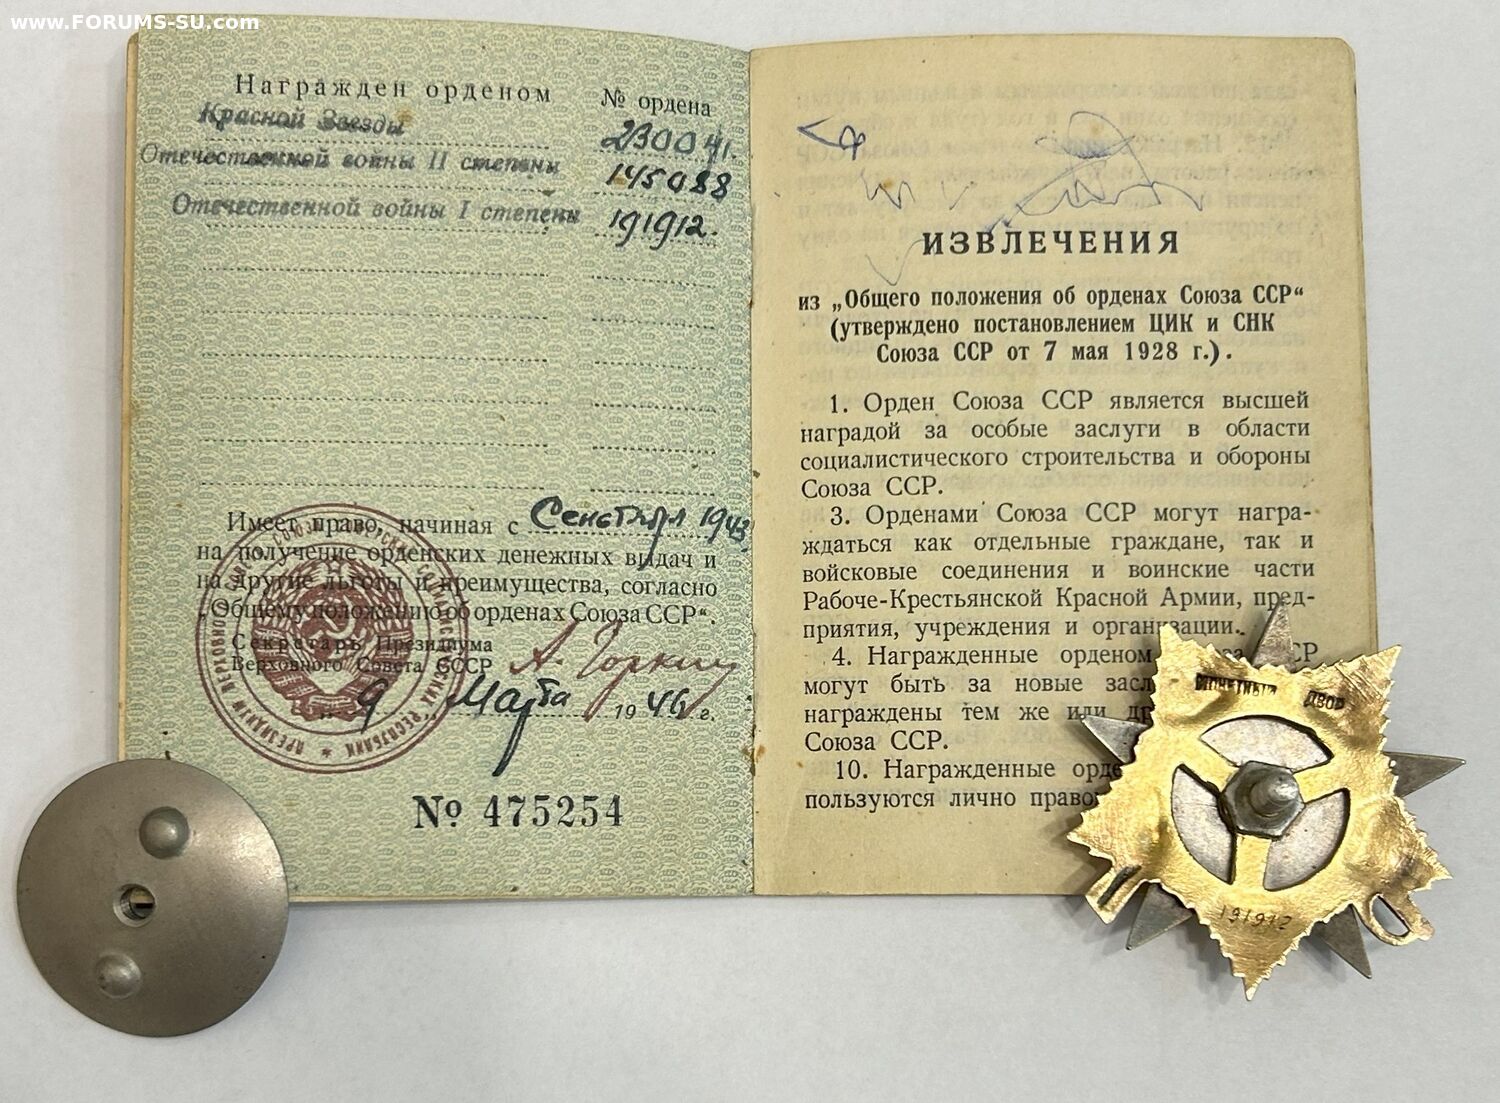 www.FORUMS-SU.com
Награжден орденом № ордена
Красной Звезды 230041.
Отечественной войны II степени 145088
Отечественной войны I степени 191912.
Имеет право, начиная с Сентября 1943
на получение орденских денежных выдач и
на другие льготы и преимущества, согласно
„Общему положению об орденах Союза ССР".
Секретарь Президиума
Верховного Совета СССР А. Горкин
„ 9 " Марта 1946 г.
№ 475254
ИЗВЛЕЧЕНИЯ
из „Общего положения об орденах Союза ССР"
(утверждено постановлением ЦИК и СНК
Союза ССР от 7 мая 1928 г.).
1. Орден Союза ССР является высшей
наградой за особые заслуги в области
социалистического строительства и обороны
Союза ССР.
3. Орденами Союза ССР могут награ-
ждаться как отдельные граждане, так и
войсковые соединения и воинские части
Рабоче-Крестьянской Красной Армии, пред-
приятия, учреждения и организации.
4. Награжденные орденом ССР
могут быть за новые
награждены тем же или
Союза ССР.
10. Награжденные
пользуются лично
МОНЕТНЫЙ ДВОР
191912